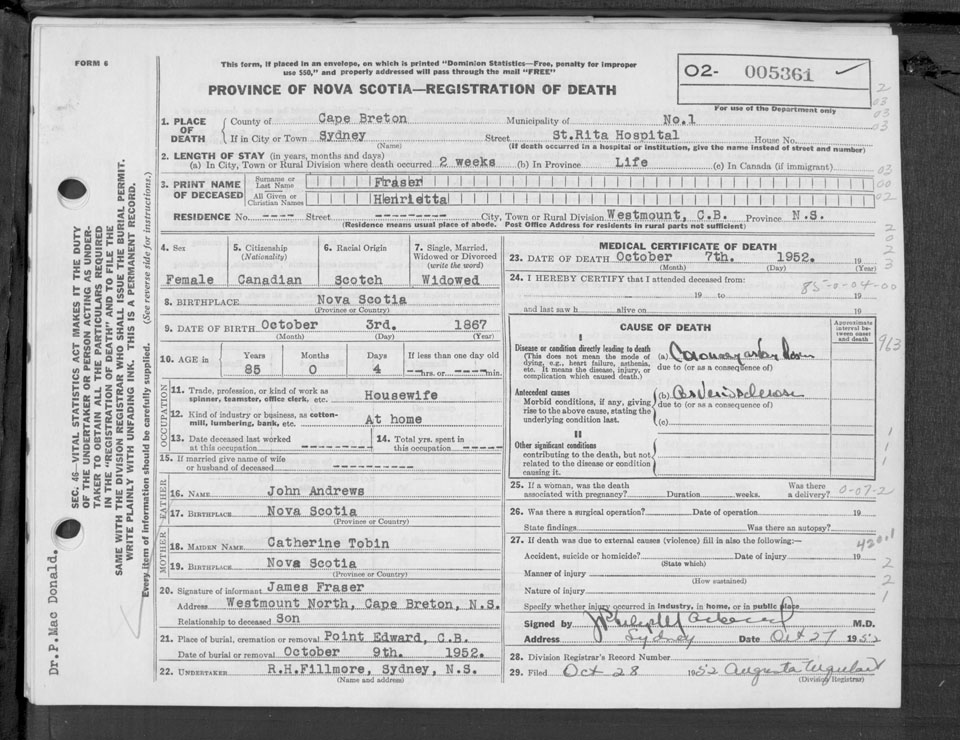 FORM 6
This form, if placed in an envelope, on which is printed "Dominion Statistics—Free, penalty for improper
use $50," and properly addressed will pass through the mail "FREE"
PROVINCE OF NOVA SCOTIA—REGISTRATION OF DEATH
O2- 005361
For use of the Department only
1. PLACE OF DEATH
County of Cape Breton Municipality of No.1
If in City or Town Sydney Street St.Rita Hospital House No.
(Name) (If death occurred in a hospital or institution, give the name instead of street and number)
2. LENGTH OF STAY (in years, months and days)
(a) In City, Town or Rural Division where death occurred 2 weeks (b) In Province Life (c) In Canada (if immigrant)
3. PRINT NAME OF DECEASED
Surname or Last Name Fraser
All Given or Christian Names Henrietta
RESIDENCE No. ---- Street ---------- City, Town or Rural Division Westmount, C.B. Province N.S.
(Residence means usual place of abode. Post Office Address for residents in rural parts not sufficient)
4. Sex Female
5. Citizenship (Nationality) Canadian
6. Racial Origin Scotch
7. Single, Married, Widowed or Divorced (write the word) Widowed
8. BIRTHPLACE Nova Scotia
(Province or Country)
9. DATE OF BIRTH October 3rd. 1867
(Month) (Day) (Year)
10. AGE in Years Months Days If less than one day old
85 0 4 --hrs. or ----min.
OCCUPATION
11. Trade, profession, or kind of work as spinner, teamster, office clerk, etc. Housewife
12. Kind of industry or business, as cotton-mill, lumbering, bank, etc. At home
13. Date deceased last worked at this occupation ----------
14. Total yrs. spent in this occupation ------
15. If married give name of wife or husband of deceased ------------
FATHER
16. NAME John Andrews
17. BIRTHPLACE Nova Scotia
(Province or Country)
MOTHER
18. MAIDEN NAME Catherine Tobin
19. BIRTHPLACE Nova Scotia
(Province or Country)
20. Signature of informant James Fraser
Address Westmount North, Cape Breton, N.S.
Relationship to deceased Son
21. Place of burial, cremation or removal Point Edward, C.B.
Date of burial or removal October 9th. 1952.
22. UNDERTAKER R.H.Fillmore, Sydney, N.S.
(Name and address)
MEDICAL CERTIFICATE OF DEATH
23. DATE OF DEATH October 7th. 1952. 19
(Month) (Day) (Year)
24. I HEREBY CERTIFY that I attended deceased from:
85-0-04-00
19 to 19
and last saw h alive on 19
CAUSE OF DEATH
Approximate interval between onset and death
I
Disease or condition directly leading to death
(This does not mean the mode of dying, e.g., heart failure, asthenia, etc. It means the disease, injury, or complication which caused death.)
(a) Coronary
due to (or as a consequence of)
963
Antecedent causes
Morbid conditions, if any, giving rise to the above cause, stating the underlying condition last.
(b) Arteriosclerosis
due to (or as a consequence of)
(c)
II
Other significant conditions
contributing to the death, but not related to the disease or condition causing it.
25. If a woman, was the death associated with pregnancy? Duration weeks. Was there a delivery? 0-07-2
26. Was there a surgical operation? Date of operation 19
State findings Was there an autopsy?
27. If death was due to external causes (violence) fill in also the following:—
420.1
Accident, suicide or homicide? Date of injury 19
(State which)
Manner of injury
(How sustained)
Nature of injury
Specify whether injury occurred in industry, in home, or in public place
Signed by M.D.
Address Sydney Date Oct 27 1952
28. Division Registrar's Record Number
29. Filed Oct 28 1952 Augusta
(Division Registrar)
SEC. 46—VITAL STATISTICS ACT MAKES IT THE DUTY
OF THE UNDERTAKER OR PERSON ACTING AS UNDER-
TAKER TO OBTAIN ALL THE PARTICULARS REQUIRED
IN THE "REGISTRATION OF DEATH" AND TO FILE THE
SAME WITH THE DIVISION REGISTRAR WHO SHALL ISSUE THE BURIAL PERMIT.
WRITE PLAINLY WITH UNFADING INK. THIS IS A PERMANENT RECORD.
Every item of information should be carefully supplied. (See reverse side for instructions.)
Dr.P.Mac Donald.